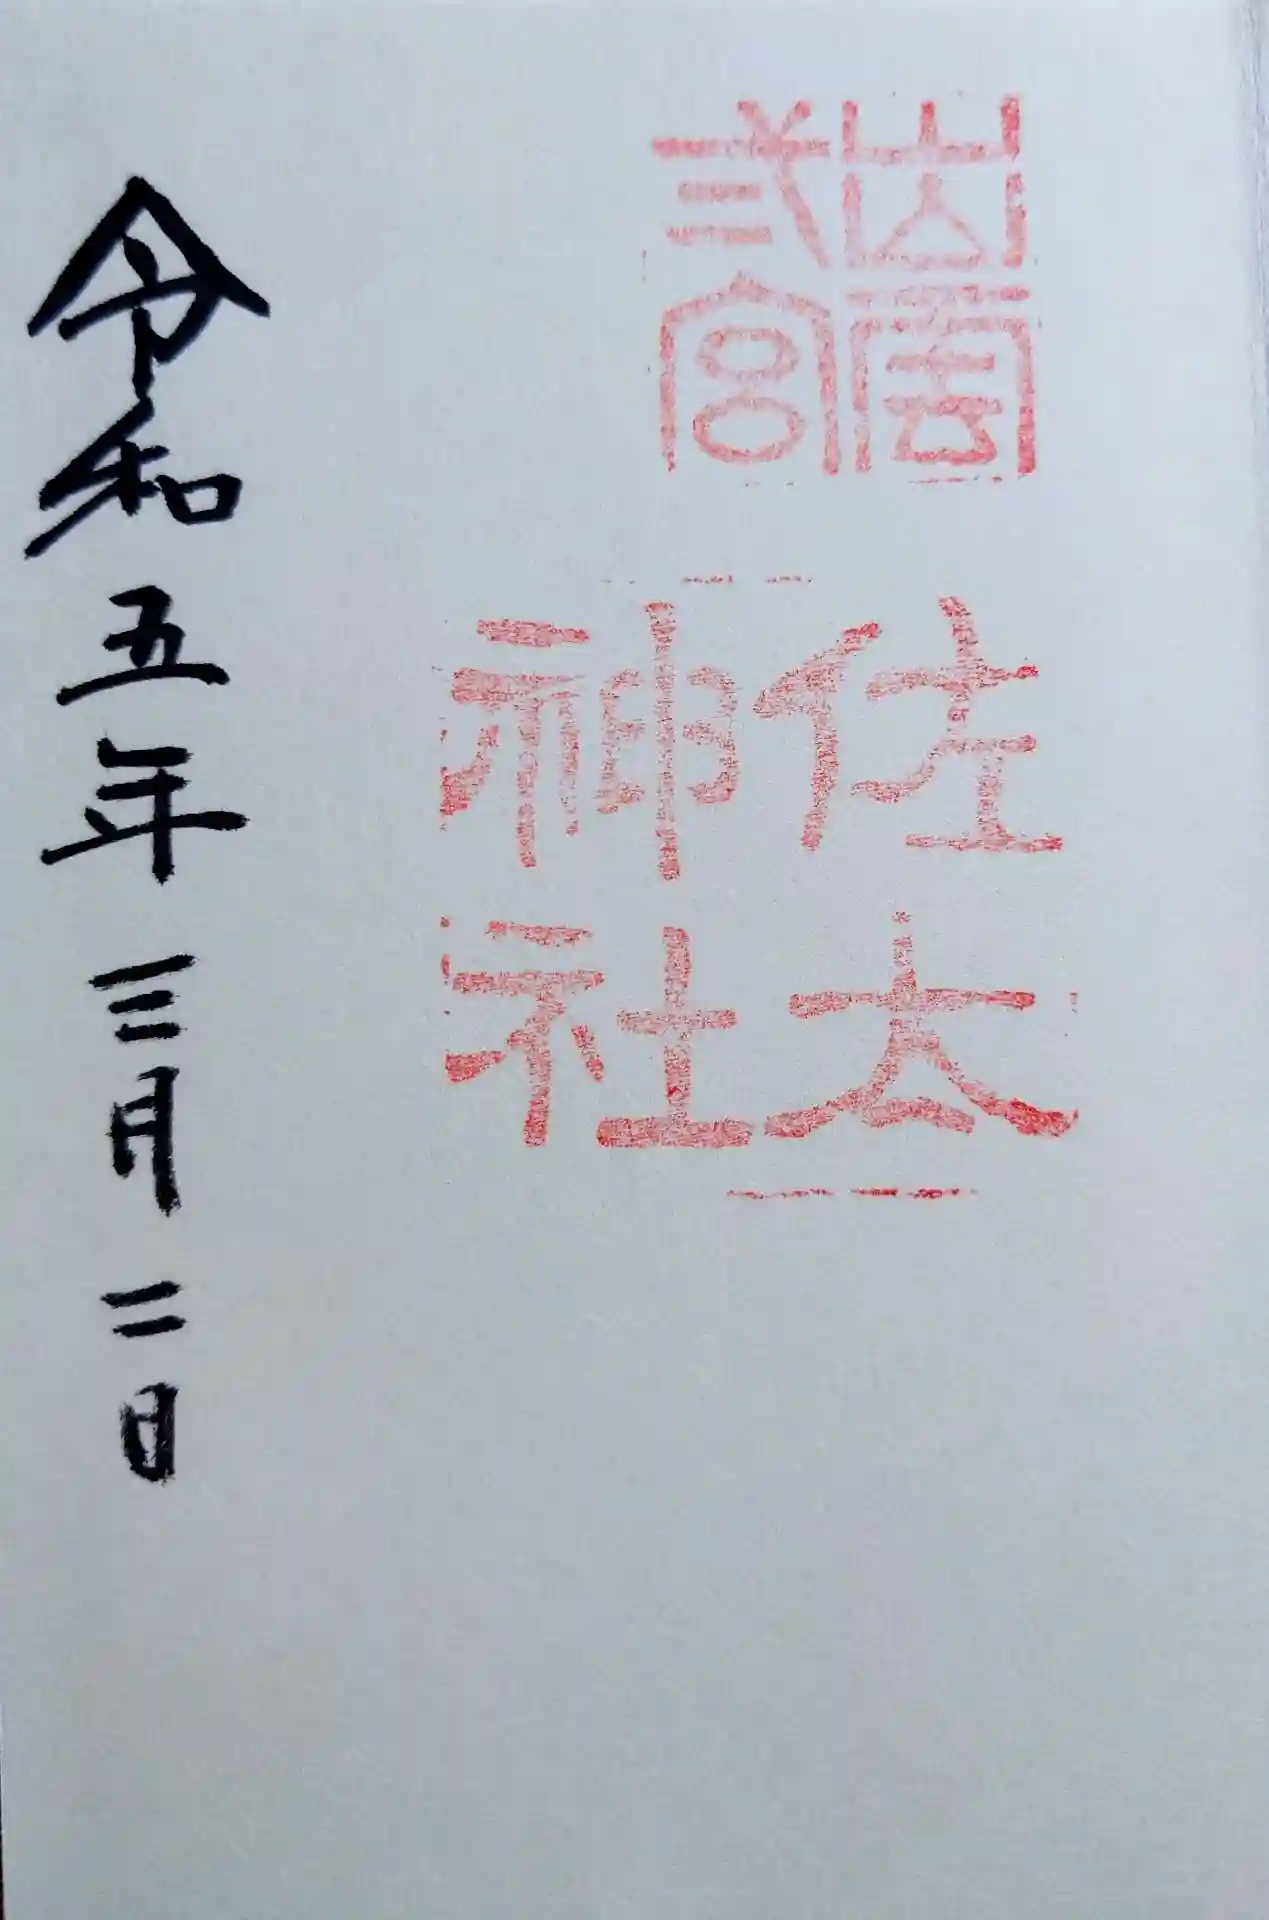 出雲
弐宮
佐太
神社
令和五年三月二日